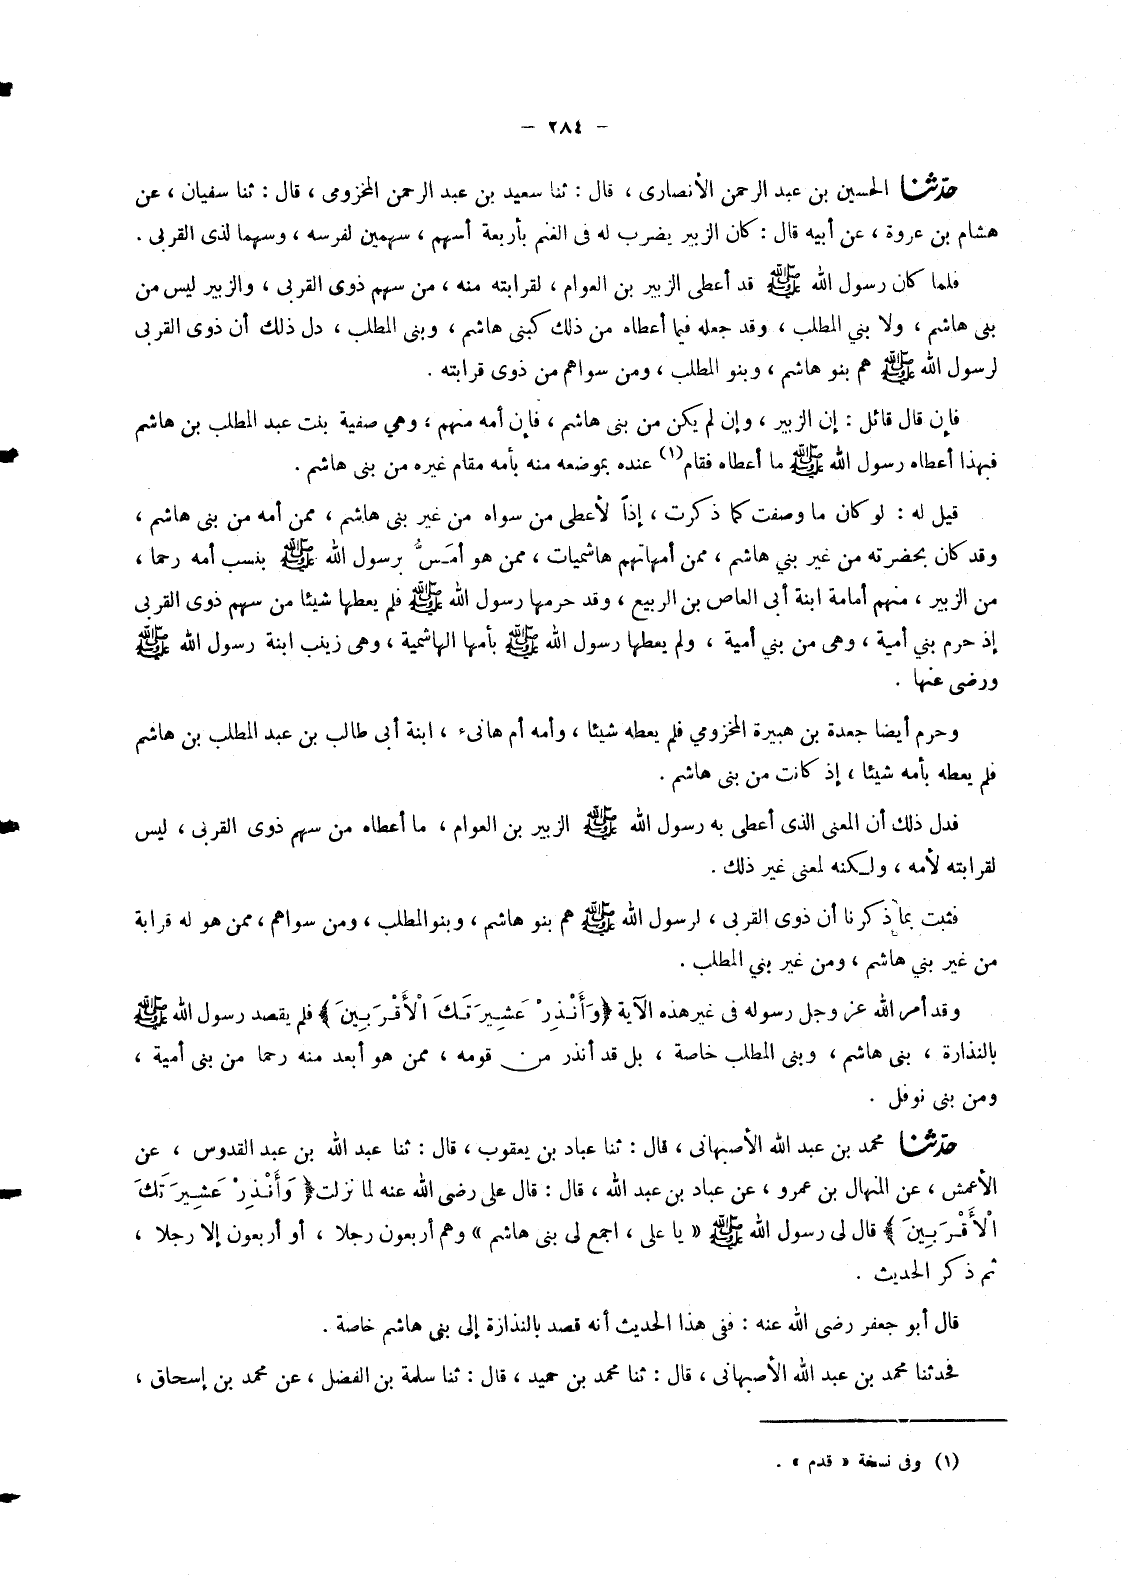 - ٢٨٤ -
حدثنا الحسين بن عبد الرحمن الأنصارى ، قال : ثنا سعيد بن عبد الرحمن المخزومى ، قال : ثنا سفيان ، عن
هشام بن عروة ، عن أبيه قال : كان الزبير يضرب له فى الغنم بأربعة أسهم ، سهمين لفرسه ، وسهما لذى القربى .
فلما كان رسول الله ﷺ قد أعطى الزبير بن العوام ، لقرابته منه ، من سهم ذوى القربى ، والزبير ليس من
بنى هاشم ، ولا بني المطلب ، وقد جعله فيما أعطاه من ذلك كبنى هاشم ، وبنى المطلب ، دل ذلك أن ذوى القربى
لرسول الله ﷺ هم بنو هاشم ، وبنو المطلب ، ومن سواهم من ذوى قرابته .
فإن قال قائل : إن الزبير ، وإن لم يكن من بنى هاشم ، فإن أمه منهم ، وهي صفية بنت عبد المطلب بن هاشم
فبهذا أعطاه رسول الله ﷺ ما أعطاه فقام(١) عنده بموضعه منه بأمه مقام غيره من بنى هاشم .
قيل له : لو كان ما وصفت كما ذكرت ، إذاً لأعطى من سواه من غير بنى هاشم ، ممن أمه من بنى هاشم ،
وقد كان بحضرته من غير بني هاشم ، ممن أمهاتهم هاشميات ، ممن هو أمَسُّ برسول الله ﷺ بنسب أمه رحما ،
من الزبير ، منهم أمامة ابنة أبى العاص بن الربيع ، وقد حرمها رسول الله ﷺ فلم يعطها شيئا من سهم ذوى القربى
إذ حرم بني أمية ، وهى من بني أمية ، ولم يعطها رسول الله ﷺ بأمها الهاشمية ، وهى زينب ابنة رسول الله ﷺ
ورضى عنها .
وحرم أيضا جعدة بن هبيرة المخزومي فلم يعطه شيئا ، وأمه أم هانىء ، ابنة أبى طالب بن عبد المطلب بن هاشم
فلم يعطه بأمه شيئا ، إذ كانت من بنى هاشم .
فدل ذلك أن المعنى الذى أعطى به رسول الله ﷺ الزبير بن العوام ، ما أعطاه من سهم ذوى القربى ، ليس
لقرابته لأمه ، ولكنه لمعنى غير ذلك .
فثبت بما ذكرنا أن ذوى القربى ، لرسول الله ﷺ هم بنو هاشم ، وبنوالمطلب ، ومن سواهم ، ممن هو له قرابة
من غير بني هاشم ، ومن غير بني المطلب .
وقد أمر الله عز وجل رسوله فى غير هذه الآية ﴿وَأَنْذِرْ عَشِيرَتَكَ الْأَقْرَبِينَ﴾ فلم يقصد رسول الله ﷺ
بالنذارة ، بنى هاشم ، وبنى المطلب خاصة ، بل قد أنذر من قومه ، ممن هو أبعد منه رحما من بنى أمية ،
ومن بنى نوفل .
حدثنا محمد بن عبد الله الأصبهانى ، قال : ثنا عباد بن يعقوب ، قال : ثنا عبد الله بن عبد القدوس ، عن
الأعمش ، عن المنهال بن عمرو ، عن عباد بن عبد الله ، قال : قال على رضى الله عنه لما نزلت ﴿وَأَنْذِرْ عَشِيرَتَكَ
الْأَقْرَبِينَ﴾ قال لى رسول الله ﷺ « يا على ، اجمع لى بنى هاشم » وهم أربعون رجلا ، أو أربعون إلا رجلا ،
ثم ذكر الحديث .
قال أبو جعفر رضى الله عنه : ففى هذا الحديث أنه قصد بالنذازة إلى بنى هاشم خاصة .
فحدثنا محمد بن عبد الله الأصبهانى ، قال : ثنا محمد بن حميد ، قال : ثنا سلمة بن الفضل ، عن محمد بن إسحاق ،
(١) وفى نسخة « قدم » .